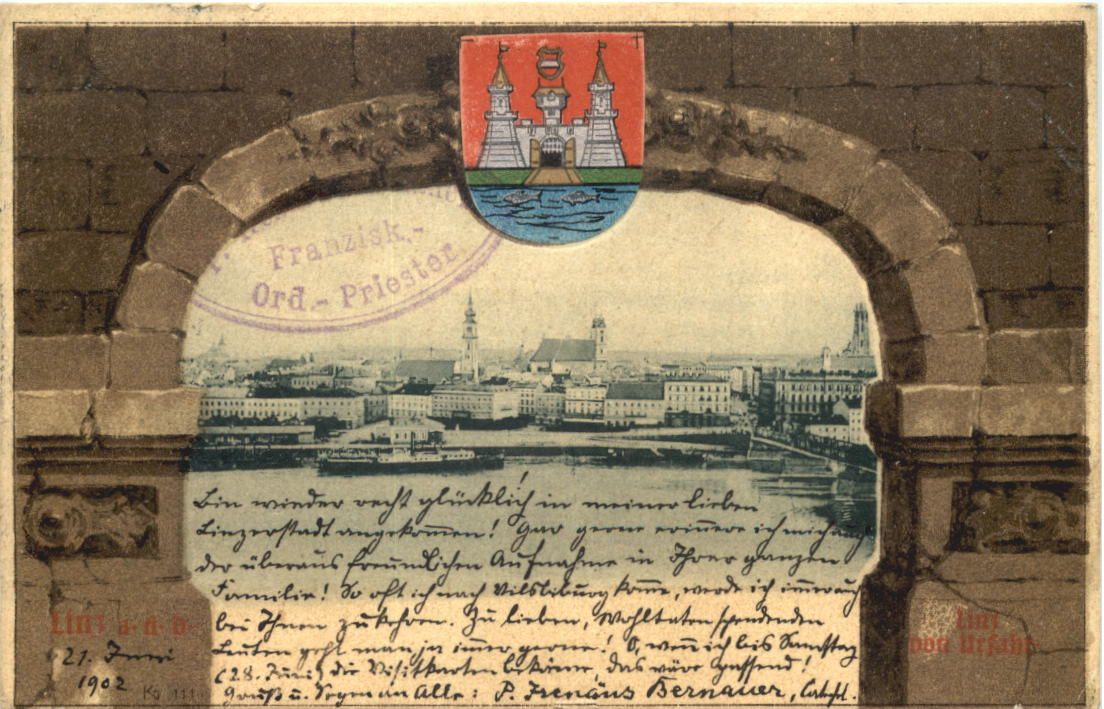 Franzisk.-
Ord.- Priester.
Bin wieder recht glücklich in meiner lieben
Linzerstadt angekommen! Gar gerne erinnere ich mich
der überaus freundlichen Aufnahme in Ihrer ganzen
Familie! So oft ich nach Vilsbiburg kome, werde ich immer
bei Ihnen zukehren. Zu lieben, Wohltaten spendenden
Leuten geht man ja imer gerne! O, wenn ich bis Samstag
(28. Juni) die Visitkarten bekäme, das wäre passend!
Gruß u. Segen an Alle: P. Irenäus Bernauer, Catechet.
Linz a. d. D.
21. Juni
1902
Linz
von Urfahr.